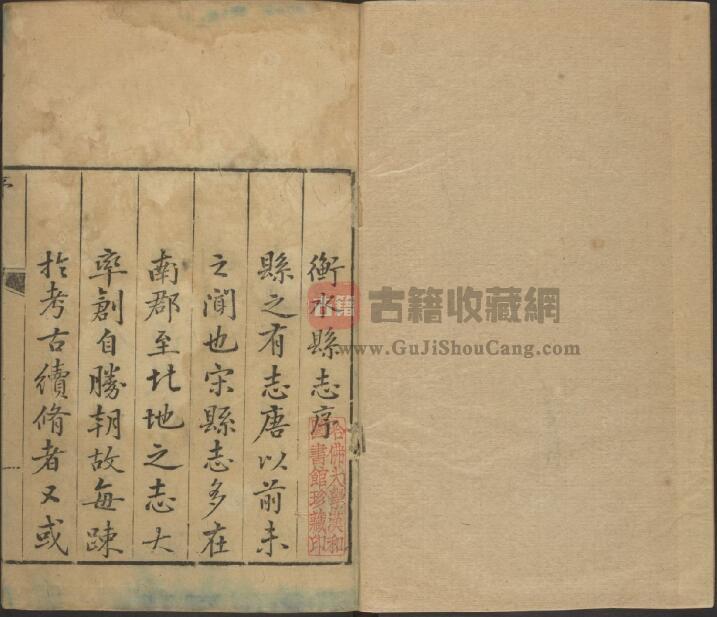 衡水縣志序
縣之有志唐以前未
之聞也宋縣志多在
南郡至北地之志大
率創自勝朝故每踈
於考古續脩者又或
哈佛大學漢和
圖書館珍藏印
古籍
古籍收藏網
www.GuJiShouCang.com